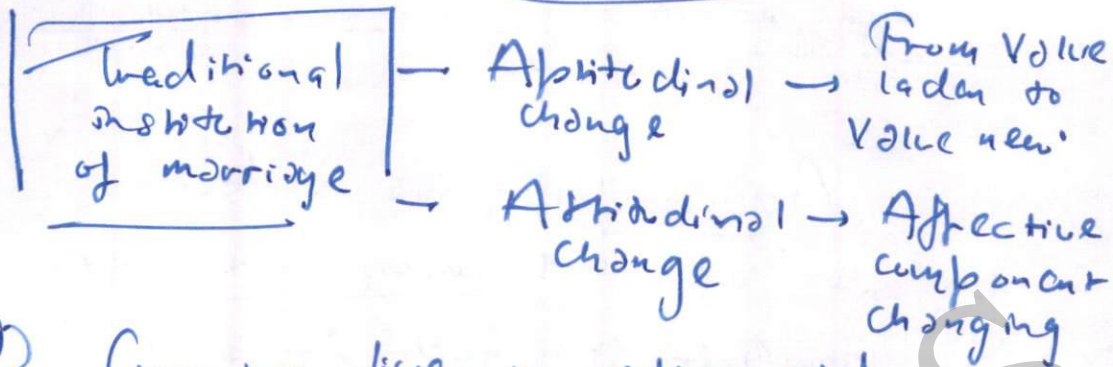 Traditional
institution
of marriage
— Aptitudinal
change
→ From Value
laden to
Value neu.
— Attitudinal
change
→ Affective
component
changing